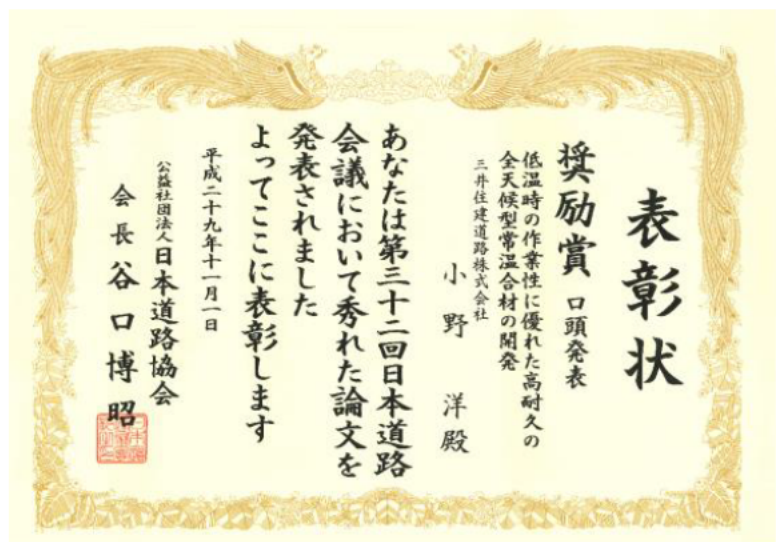 表彰状
奨励賞 口頭発表
低温時の作業性に優れた高耐久の
全天候型常温合材の開発
三井住建道路株式会社
小野 洋殿
あなたは第三十二回日本道路
会議において秀れた論文を
発表されました
よってここに表彰します
平成二十九年十一月一日
公益社団法人日本道路協会
会長谷口博昭